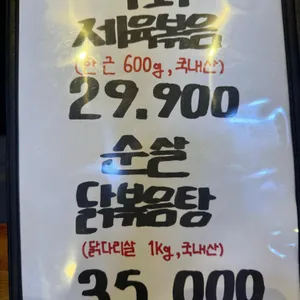 제육볶음
(한 근 600g, 국내산)
29.900
순살
닭볶음탕
(닭다리살 1kg, 국내산)
35.000